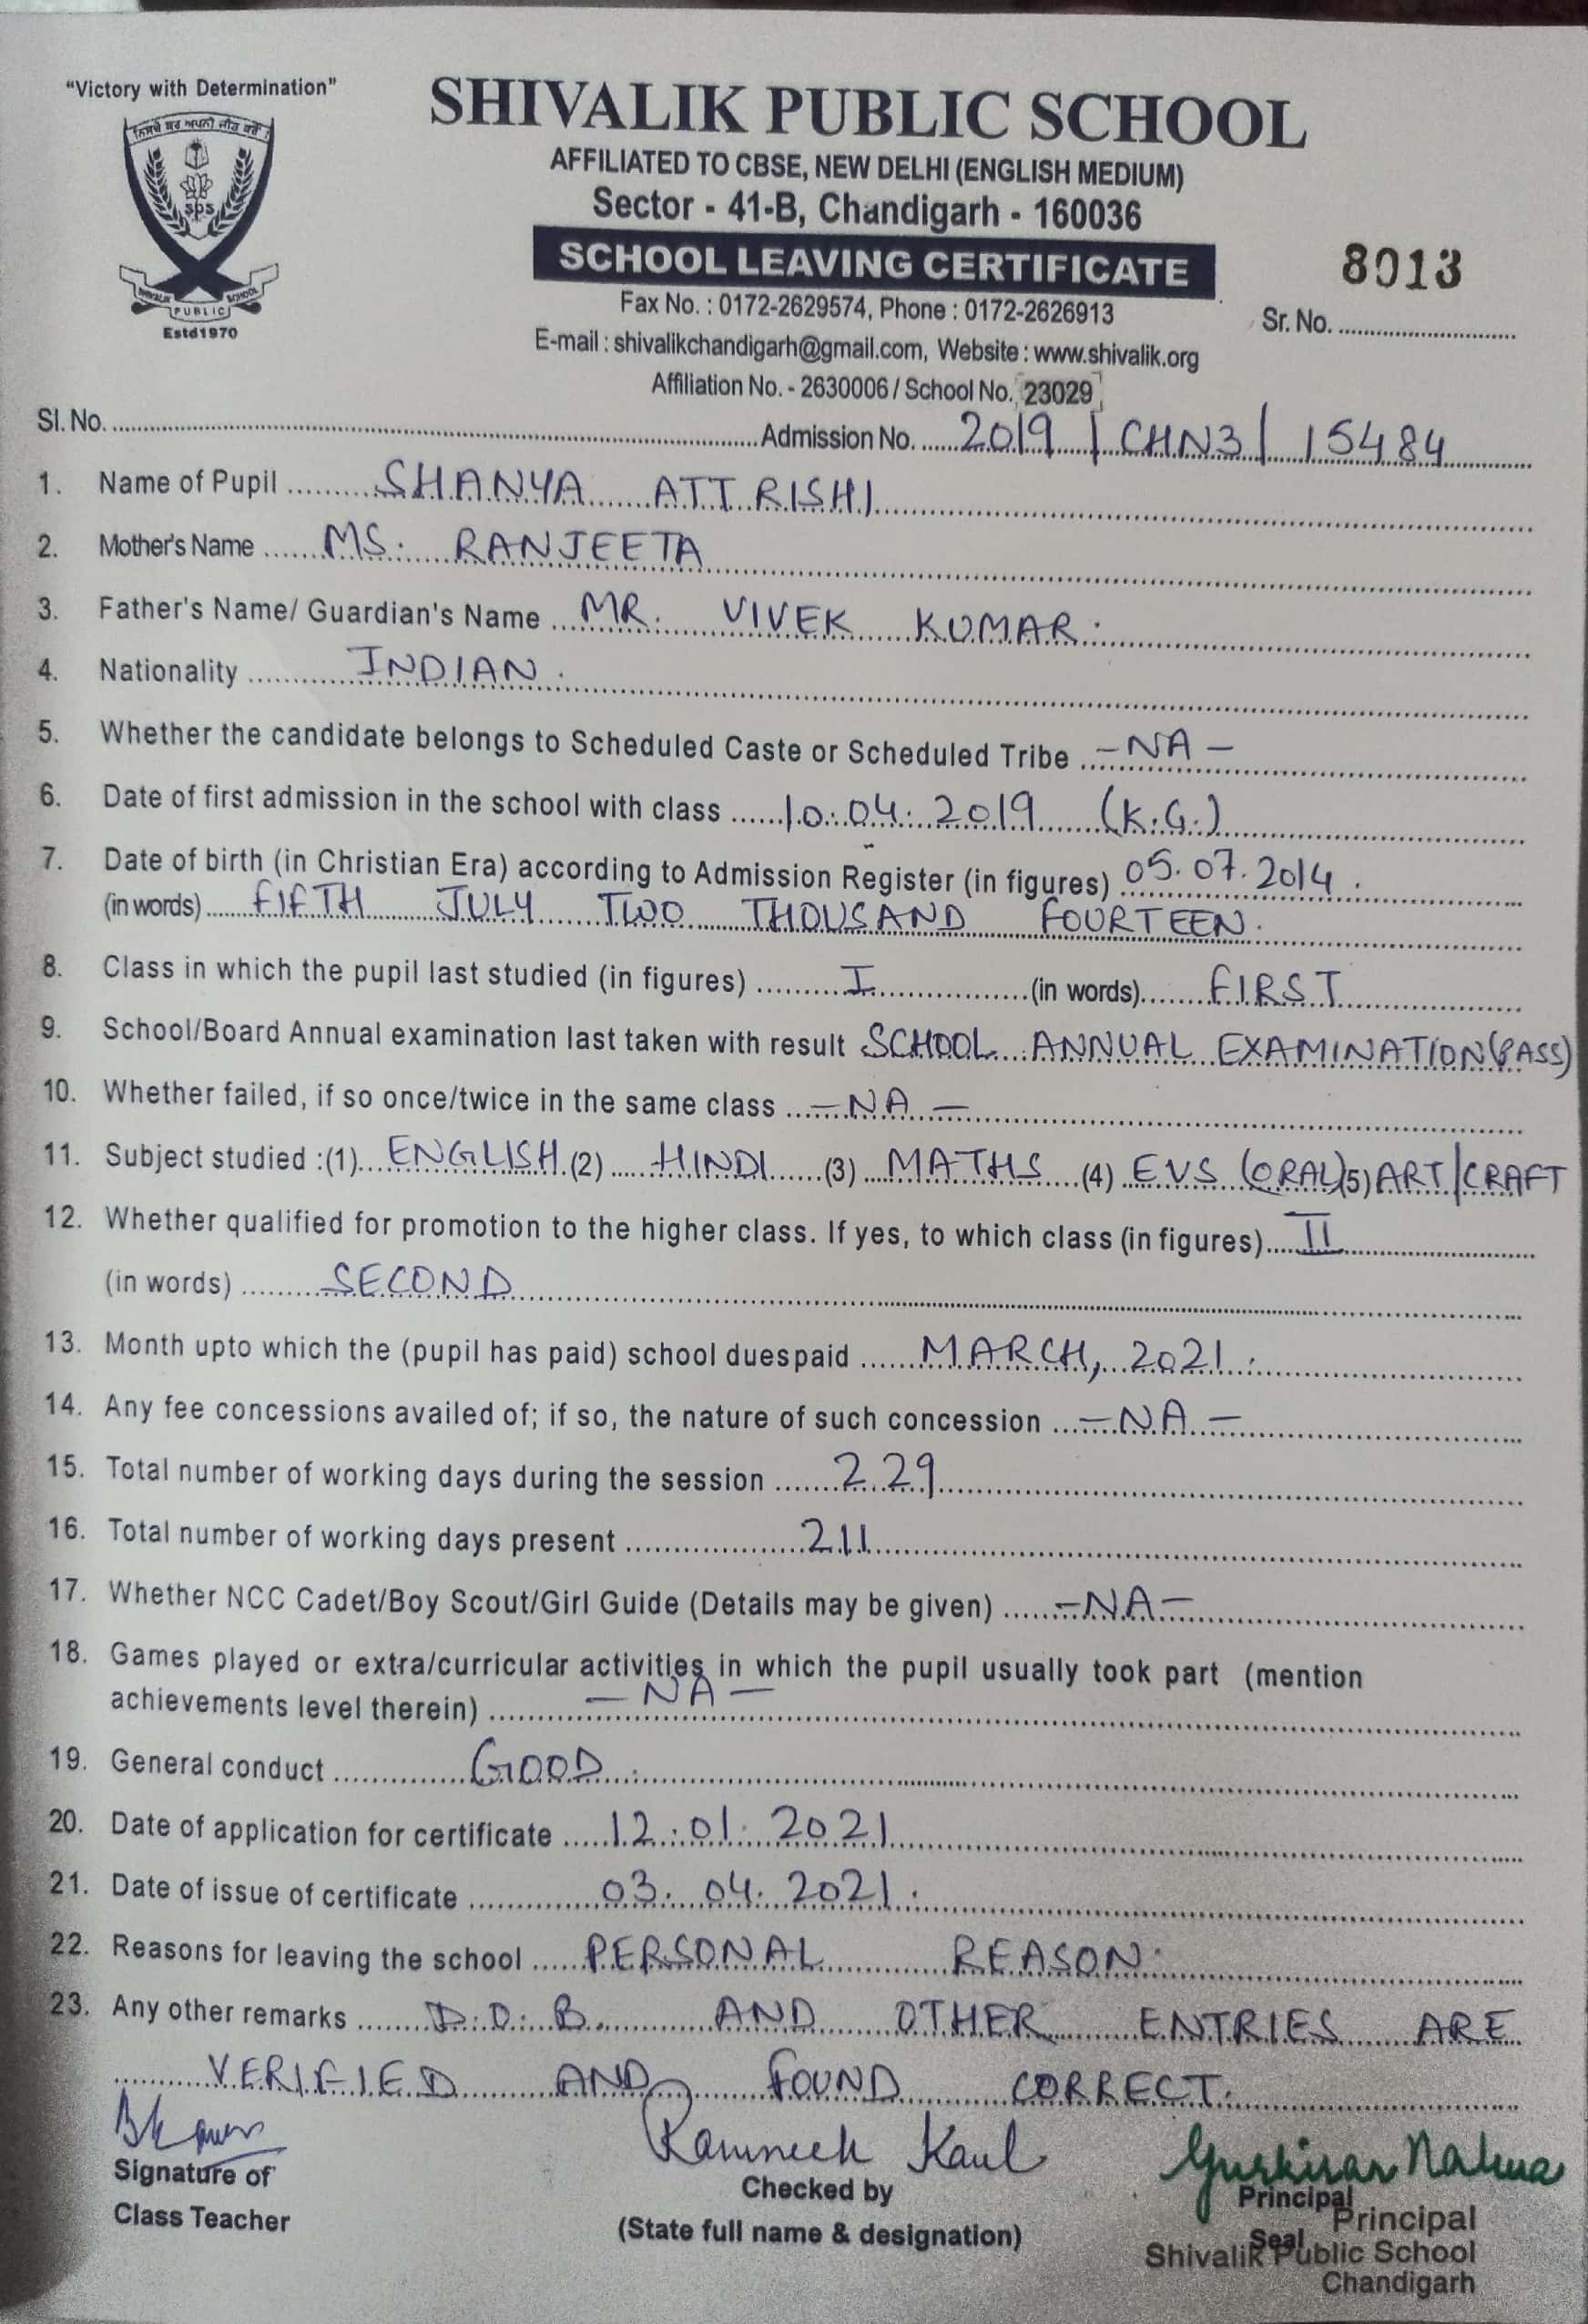 "Victory with Determination"
SHIVALIK PUBLIC SCHOOL
AFFILIATED TO CBSE, NEW DELHI (ENGLISH MEDIUM)
Sector - 41-B, Chandigarh - 160036
SCHOOL LEAVING CERTIFICATE
8013
Fax No. : 0172-2629574, Phone : 0172-2626913
Sr. No.
E-mail : shivalikchandigarh@gmail.com, Website : www.shivalik.org
Affiliation No. - 2630006 / School No. 23029
sps
SHIVALIK PUBLIC SCHOOL
Estd1970
Sl. No. Admission No. 2019 | CHN3 | 15484
1. Name of Pupil SHANYA ATTRISHI
2. Mother's Name MS. RANJEETA
3. Father's Name/ Guardian's Name MR. VIVEK KUMAR.
4. Nationality INDIAN.
5. Whether the candidate belongs to Scheduled Caste or Scheduled Tribe - NA -
6. Date of first admission in the school with class 10.04.2019 (K.G.)
7. Date of birth (in Christian Era) according to Admission Register (in figures) 05.07.2014.
(in words) FIFTH JULY TWO THOUSAND FOURTEEN.
8. Class in which the pupil last studied (in figures) I (in words) FIRST
9. School/Board Annual examination last taken with result SCHOOL ANNUAL EXAMINATION (PASS)
10. Whether failed, if so once/twice in the same class - NA -
11. Subject studied :(1) ENGLISH (2) HINDI (3) MATHS (4) EVS (ORAL) (5) ART/CRAFT
12. Whether qualified for promotion to the higher class. If yes, to which class (in figures) II
(in words) SECOND
13. Month upto which the (pupil has paid) school duespaid MARCH, 2021.
14. Any fee concessions availed of; if so, the nature of such concession - NA -
15. Total number of working days during the session 229
16. Total number of working days present 211
17. Whether NCC Cadet/Boy Scout/Girl Guide (Details may be given) - NA -
18. Games played or extra/curricular activities in which the pupil usually took part (mention
achievements level therein) - NA -
19. General conduct GOOD.
20. Date of application for certificate 12.01.2021
21. Date of issue of certificate 03.04.2021.
22. Reasons for leaving the school PERSONAL REASON.
23. Any other remarks D.O.B. AND OTHER ENTRIES ARE
VERIFIED AND FOUND CORRECT.
Ramneek Kaul
Gurkiran Nalwa
Signature of
Class Teacher
Checked by
(State full name & designation)
Principal
Seal
Principal
Shivalik Public School
Chandigarh